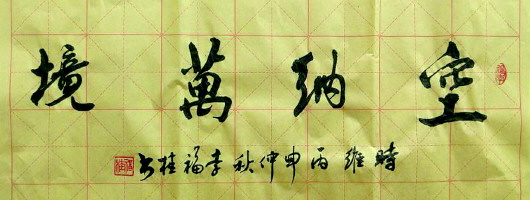 空纳萬境
時維丙申仲秋李福桂书